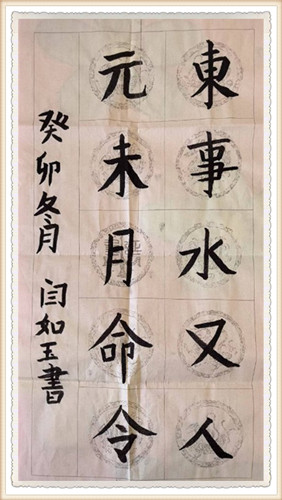 東事水又人
元未月命令
癸卯冬月 闫如玉書